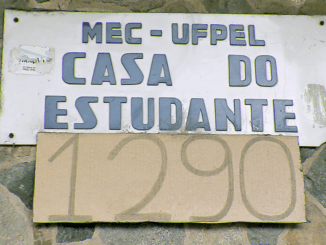 MEC - UFPEL
CASA DO
ESTUDANTE
1290